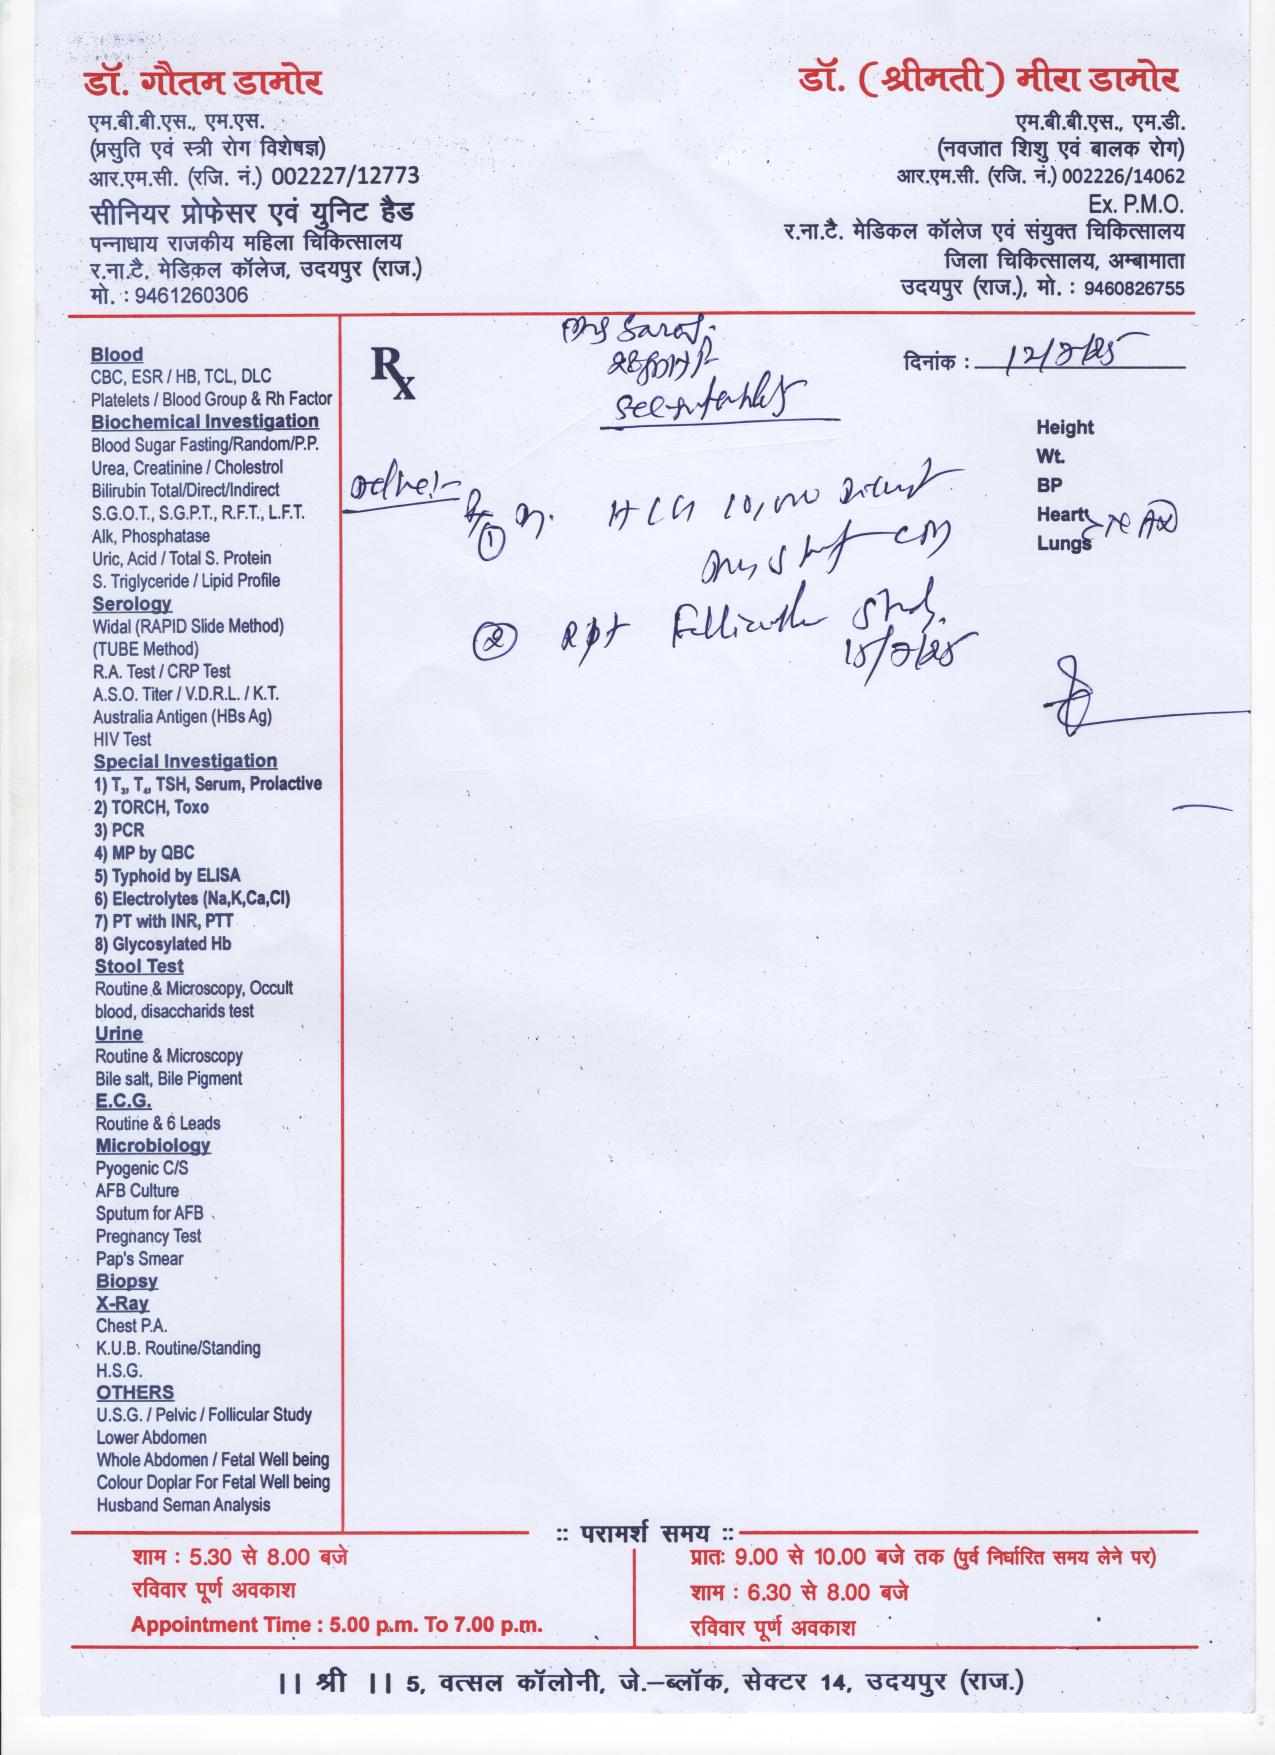 डॉ. गौतम डामोर
एम.बी.बी.एस., एम.एस.
(प्रसुति एवं स्त्री रोग विशेषज्ञ)
आर.एम.सी. (रजि. नं.) 002227/12773
सीनियर प्रोफेसर एवं युनिट हैड
पन्नाधाय राजकीय महिला चिकित्सालय
र.ना.टै. मेडिकल कॉलेज, उदयपुर (राज.)
मो. : 9461260306
डॉ. (श्रीमती) मीरा डामोर
एम.बी.बी.एस., एम.डी.
(नवजात शिशु एवं बालक रोग)
आर.एम.सी. (रजि. नं.) 002226/14062
Ex. P.M.O.
र.ना.टै. मेडिकल कॉलेज एवं संयुक्त चिकित्सालय
जिला चिकित्सालय, अम्बामाता
उदयपुर (राज.), मो. : 9460826755
Blood
CBC, ESR / HB, TCL, DLC
Platelets / Blood Group & Rh Factor
Biochemical Investigation
Blood Sugar Fasting/Random/P.P.
Urea, Creatinine / Cholestrol
Bilirubin Total/Direct/Indirect
S.G.O.T., S.G.P.T., R.F.T., L.F.T.
Alk, Phosphatase
Uric, Acid / Total S. Protein
S. Triglyceride / Lipid Profile
Serology
Widal (RAPID Slide Method)
(TUBE Method)
R.A. Test / CRP Test
A.S.O. Titer / V.D.R.L. / K.T.
Australia Antigen (HBs Ag)
HIV Test
Special Investigation
1) T₃, T₄, TSH, Serum, Prolactive
2) TORCH, Toxo
3) PCR
4) MP by QBC
5) Typhoid by ELISA
6) Electrolytes (Na,K,Ca,Cl)
7) PT with INR, PTT
8) Glycosylated Hb
Stool Test
Routine & Microscopy, Occult
blood, disaccharids test
Urine
Routine & Microscopy
Bile salt, Bile Pigment
E.C.G.
Routine & 6 Leads
Microbiology
Pyogenic C/S
AFB Culture
Sputum for AFB
Pregnancy Test
Pap's Smear
Biopsy
X-Ray
Chest P.A.
K.U.B. Routine/Standing
H.S.G.
OTHERS
U.S.G. / Pelvic / Follicular Study
Lower Abdomen
Whole Abdomen / Fetal Well being
Colour Doplar For Fetal Well being
Husband Seman Analysis
Rx
Saroj
दिनांक : 12/2/25
Height
Wt.
BP
Heart
Lungs
Advice:-
① HCG 10,000
② Rpt Follicular Study
15/2/25
:: परामर्श समय ::
शाम : 5.30 से 8.00 बजे
रविवार पूर्ण अवकाश
Appointment Time : 5.00 p.m. To 7.00 p.m.
प्रातः 9.00 से 10.00 बजे तक (पुर्व निर्धारित समय लेने पर)
शाम : 6.30 से 8.00 बजे
रविवार पूर्ण अवकाश
|| श्री || 5, वत्सल कॉलोनी, जे.–ब्लॉक, सेक्टर 14, उदयपुर (राज.)